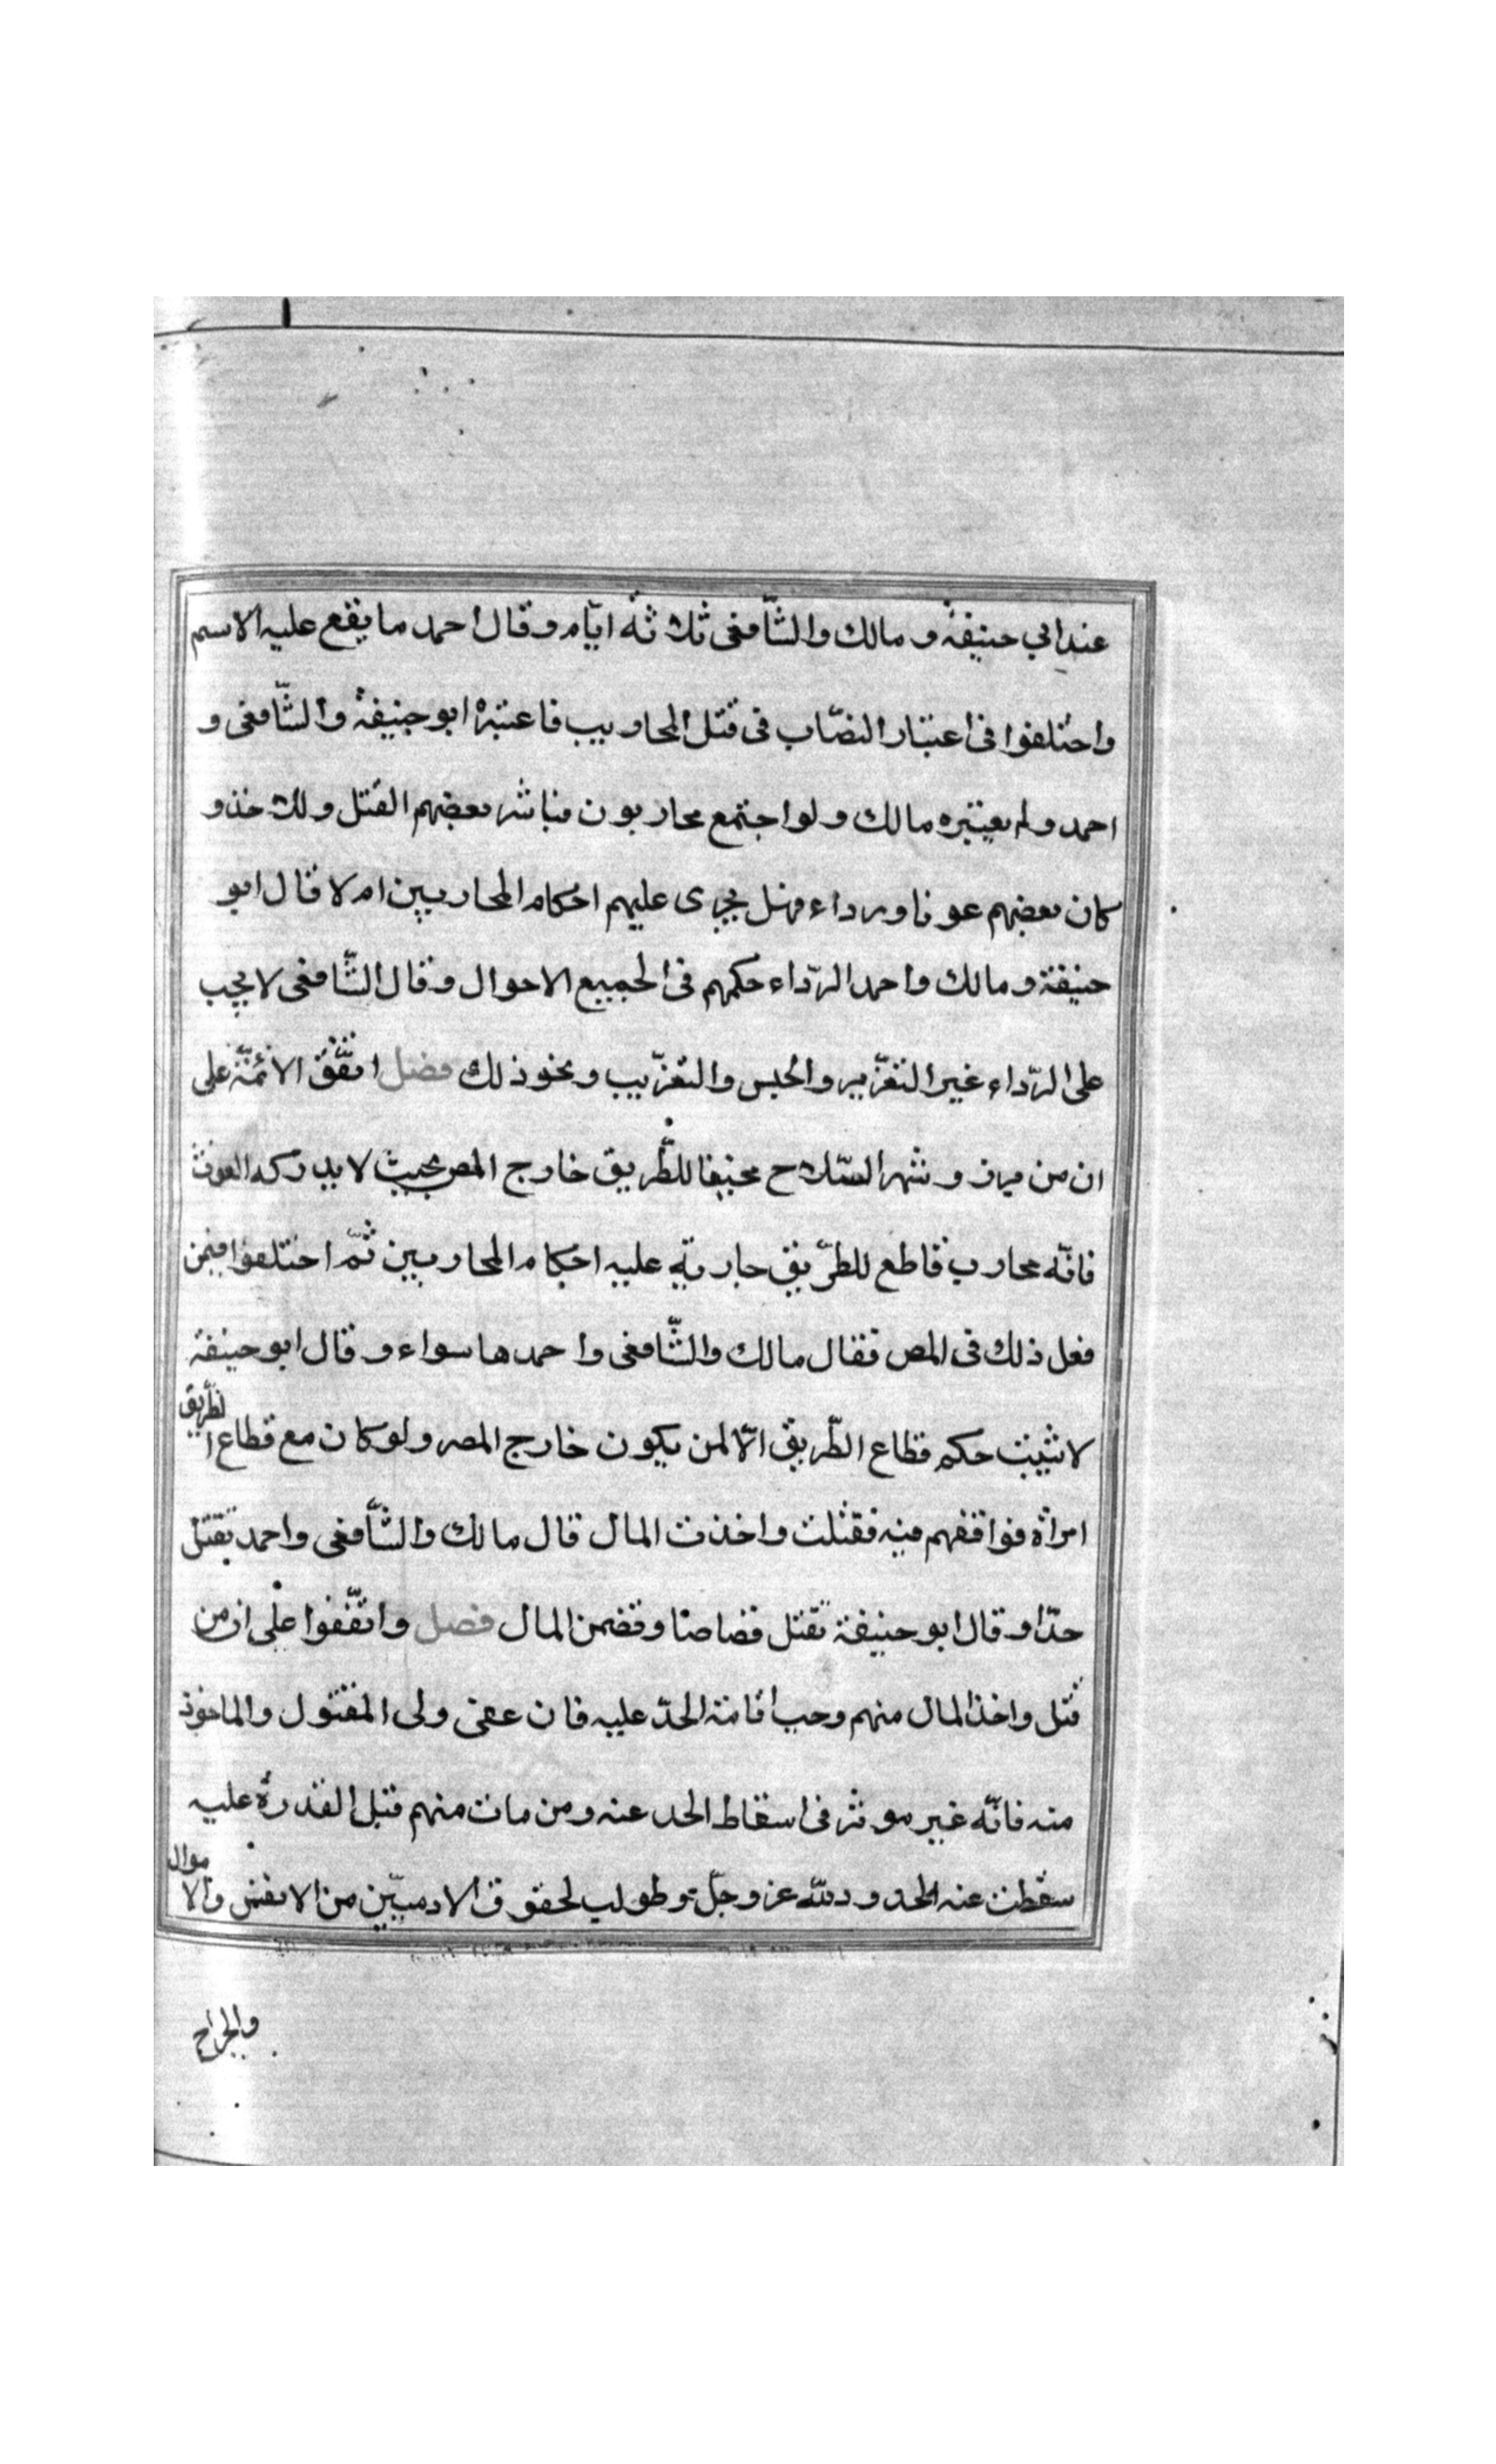 عند ابي حنيفة و مالك والشّافعى ثلاثة ايّام وقال احمد ما يقع عليه الاسم
واختلفوا فى اعتبار النصّاب فى قتل المحاربيب فاعتبرة ابو حنيفة والشّافعى و
احمد ولم يعتبره مالك ولو اجتمع محاربون فباشر بعضهم القتل ولاخذ و
كان بعضهم عونا ورداء فهل يجرى عليهم احكام المحاربين ام لا قال ابو
حنيفة و مالك واحمد الرّداء حكمهم فى الجميع الاحوال وقال الشّافعى لا يجب
على الرّداء غير التعزّير والحبس والتغرّيب ونحو ذلك فصل اتّفق الائمّة على
ان من برز وشهر السّلاح مخيفا للطّريق خارج المصر بحيث لا يدركه الغوث
فانّه محارب قاطع للطرّيق جارية عليه احكام المحاربين ثمّ اختلفوا فيمن
فعل ذلك فى المصر فقال مالك والشّافعى واحمد هما سواء وقال ابو حنيفة
لا تثبت حكم قطاع الطّريق الّا لمن يكون خارج المصر ولو كان مع قطاع الطّريق
امراة فوافقهم فيه فقتلت واخذت المال قال مالك والشّافعى واحمد تقتل
حدّا وقال ابو حنيفة تقتل قصاصا وتضمن المال فصل واتفّقوا على ان من
قتل واخذ المال منهم وجب اقامة الحدّ عليه فان عفى ولى المقتول والماخوذ
منه فانّه غير موثر فى اسقاط الحد عنه ومن مات منهم قبل القدرة عليه
سقطت عنه الحدود لله عز وجلّ وطولب لحقوق الادميّين من الانفس والاموال
والجراح